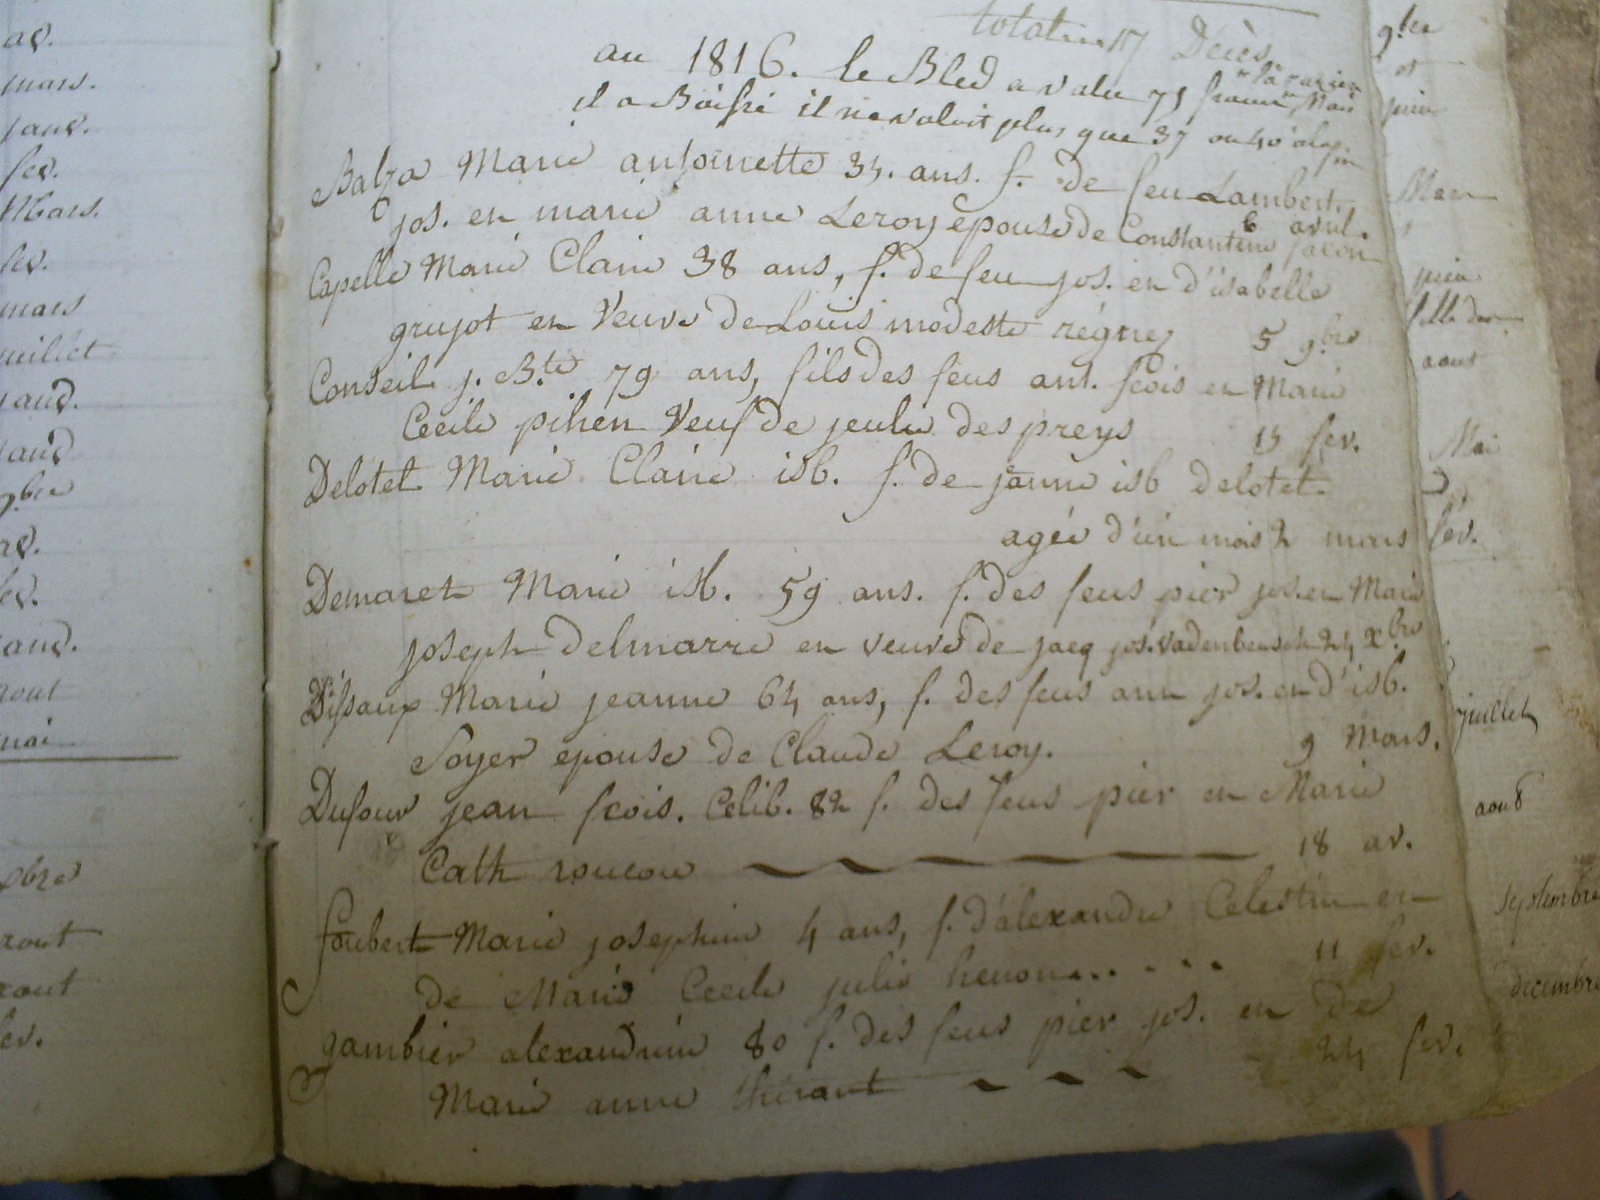 total 17 Décès
au 1816. le Bled a value 75 francs la rasier
Mais
il a Baissé il ne valoit plus que 37 ou 40 a la fin
Balza Marie antoinette 34. ans. f. de feu Lambert
jos. en marie anne Leroy epouse de Constantin jacon
6 avril.
Capelle Marie Claire 38 ans, f. de feu jos. en d'isabelle
grujot en Veuve de Louis modeste régnez 5 9.bre
Conseil j. B.te 79 ans, fils des feus ant. fcois en Marie
Cecile pihen Veuf de jeulie despreys 15 fev.
Delotel Marie Claire isb. f. de janne isb delotel
agée d'un mois 2 mars
Demaret Marie isb. 59 ans. f. des feus pier jos. en Marie
joseph Delmarre en veuve de jacq jos. 24 x.bre
Dissaux Marie jeanne 64 ans, f. des feus ann jos. en d'isb.
Soyer epouse de Claude Leroy. 9 Mars.
Dufour jean fcois. Celib. 82 f. des feus pier en Marie
Cath roucou 18 av.
foubert Marie josephine 4 ans, f. d'alexandre Celestin en
de Marie Cecile julie henon.. . . . . 11 fev.
gambier alexandrine 80 f. des feus pier jos. en de
Marie anne thérant 24 fev.
av.
mars.
janv.
fev.
Mars.
fev.
mars
juillet
janv.
janv
9bre
av.
fev.
janv.
aout
mai
xbre
aout
aout
fev.
9bre
et
juin
juin
fille de
aout
Mai
fév.
juillet
aout
septembre
decembre